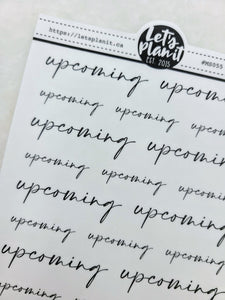 https://letsplanit.ca
Let's
Plan it
EST. 2015
upcoming upcoming
upcoming upcoming upcoming
upcoming upcoming
upcoming upcoming upcoming
upcoming upcoming
upcoming upcoming
upcoming upcoming
upcoming